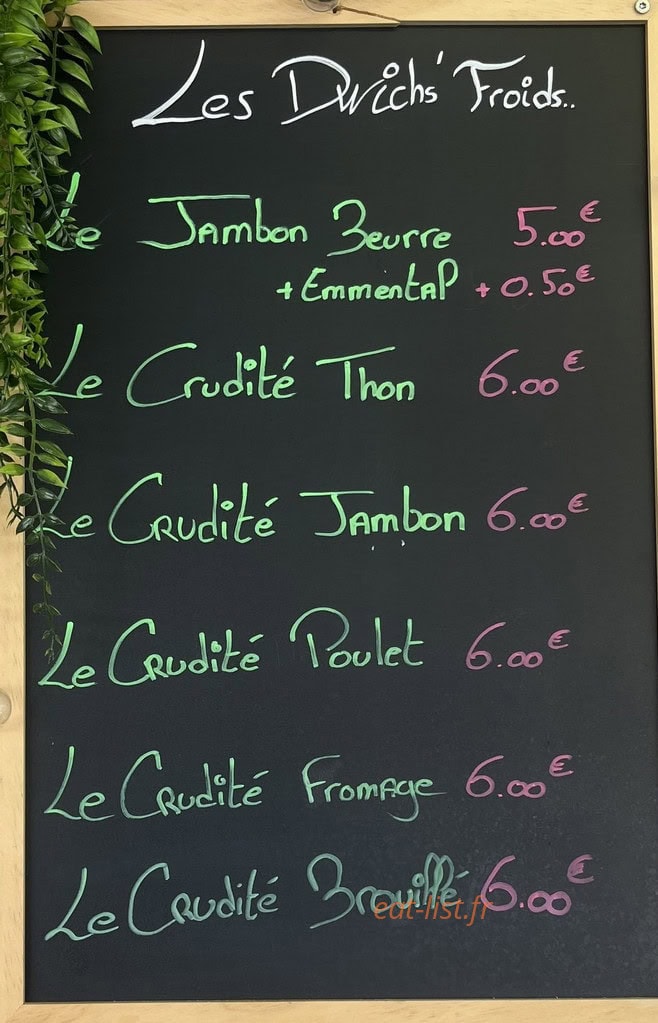 Les Dwichs' Froids..
Le Jambon Beurre 5.00€
+ Emmental + 0.50€
Le Crudité Thon 6.00€
Le Crudité Jambon 6.00€
Le Crudité Poulet 6.00€
Le Crudité Fromage 6.00€
Le Crudité Brouillé 6.00€
eat-list.fr